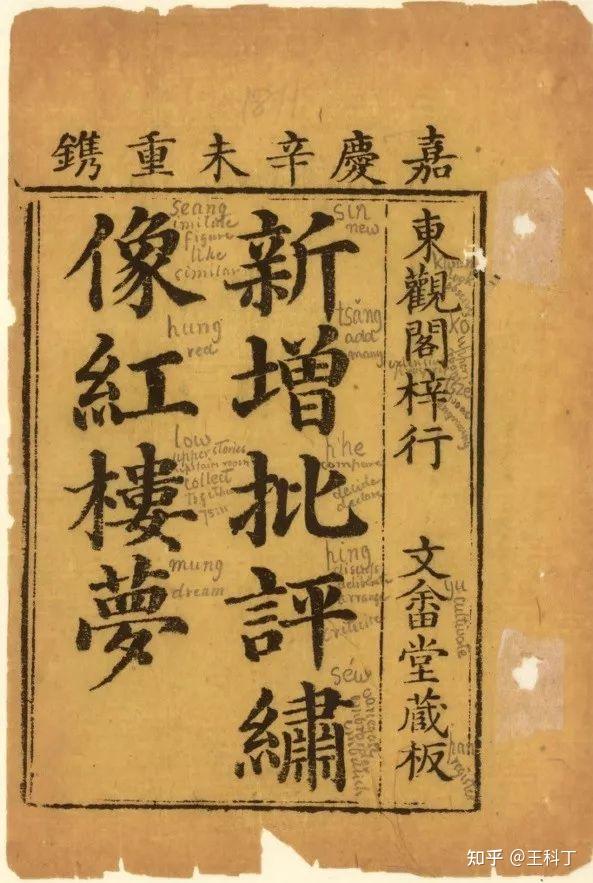 嘉慶辛未重鐫
東觀閣梓行 文畬堂藏板
新增批評繡
像紅樓夢
sin
new
tsăng
add
many
p'he
compare
decide
declare
hing
séw
seang
imitate
figure
like
similar
hung
red
low
upper stories
collect
together
join
mung
dream
yu
cultivate
知乎 @王科丁